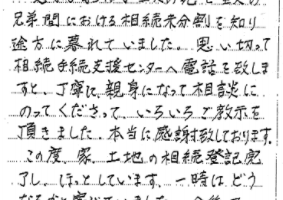 兄弟間における相続未分割を知り
途方に暮れていました。思い切って
相続手続支援センターへ電話を致しま
すと、丁寧に、親身になって相談に
のってくださって、いろいろご教示を
頂きました。本当に感謝致しております。
この度、家、土地の相続登記完
了し、ほっとしています。一時はどう